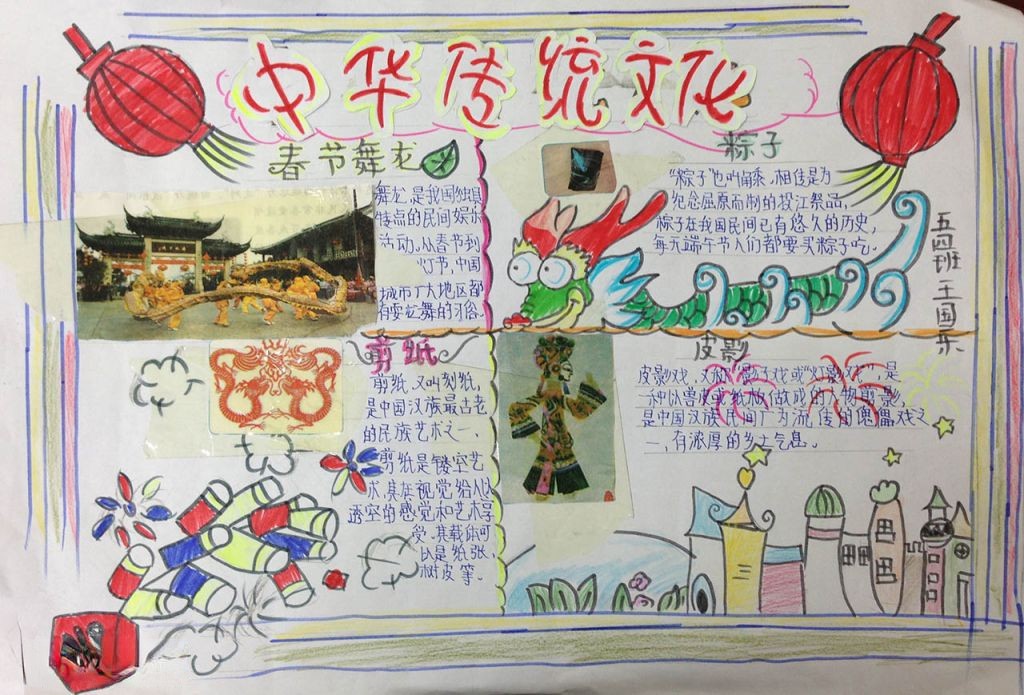 中华传统文化
春节舞龙
舞龙,是我国独具
特点的民间娱乐
活动,从春节到
灯节,中国
城市广大地区都
有耍龙舞的习俗
粽子
“粽子”也叫角黍,相传是为
纪念屈原而制的投江祭品,
粽子在我国民间已有悠久的历史,
每天端午节人们都要买粽子吃。
五四班 王国
剪纸
剪纸,又叫刻纸,
是中国汉族最古老
的民族艺术之一、
剪纸是镂空艺
术,其在视觉给人以
透空的感觉和艺术享
受。其载体可
以是纸张、
树皮等。
皮影
皮影戏,又称“影子戏或“灯影戏”,是
一种以兽皮或纸板做成的人物剪影,
是中国汉族民间广为流传的傀儡戏之
一,有浓厚的乡土气息。